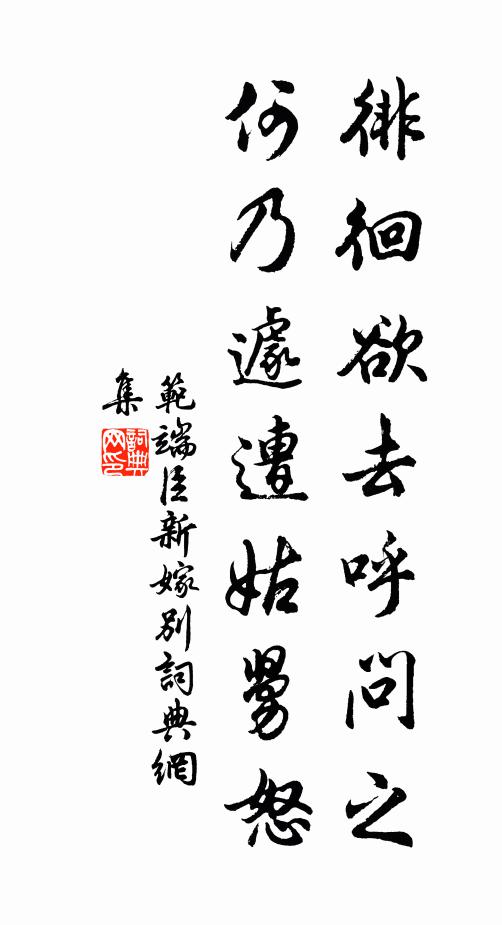 徘徊欲去呼問之
何乃遽遭姑舅怒
範端臣新嫁別詞典網
集
詞典
网印